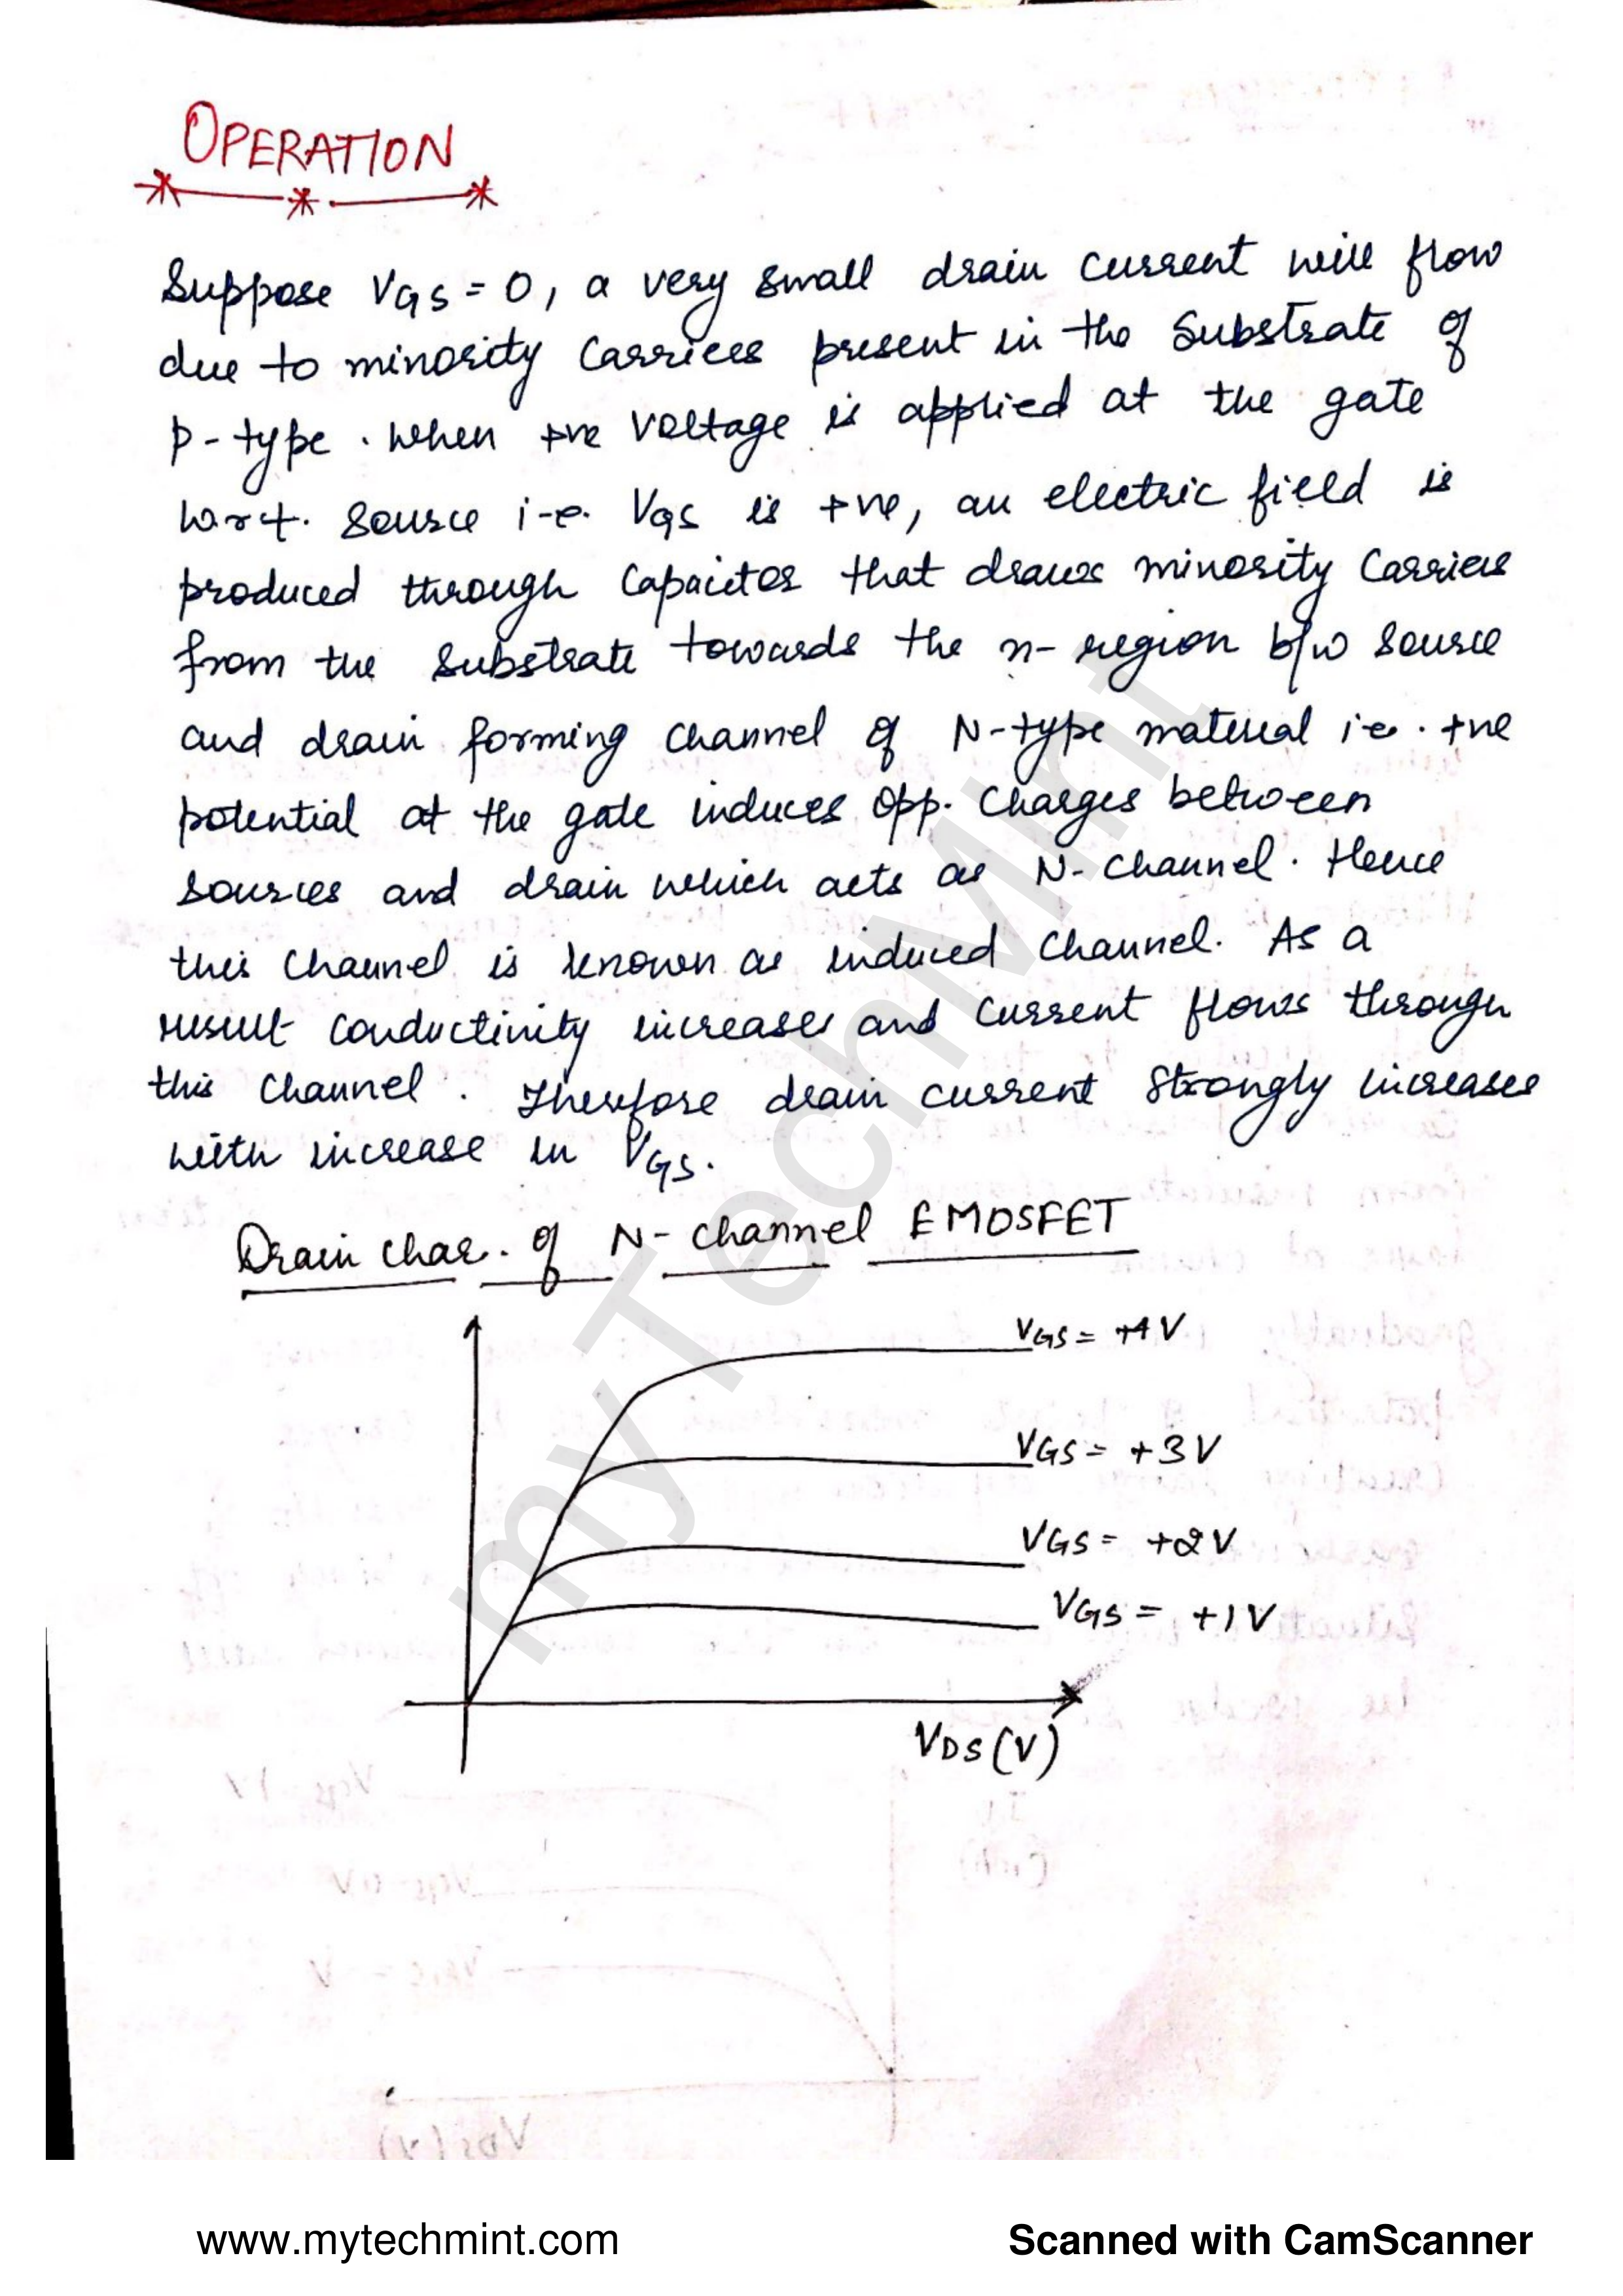 OPERATION
Suppose VGS = 0, a very small drain current will flow
due to minority carriers present in the substrate of
p-type. When +ve voltage is applied at the gate
w.r.t. source i.e. VGS is +ve, an electric field is
produced through capacitor that draws minority carriers
from the substrate towards the n-region b/w source
and drain forming channel of N-type material i.e. +ve
potential at the gate induces opp. charges between
sources and drain which acts as N-channel. Hence
this channel is known as induced channel. As a
result conductivity increases and current flows through
this channel. Therefore drain current strongly increases
with increase in VGS.
Drain char. of N-channel EMOSFET
VGS = +4V
VGS = +3V
VGS = +2V
VGS = +1V
VDS (V)
myTechMint
www.mytechmint.com
Scanned with CamScanner